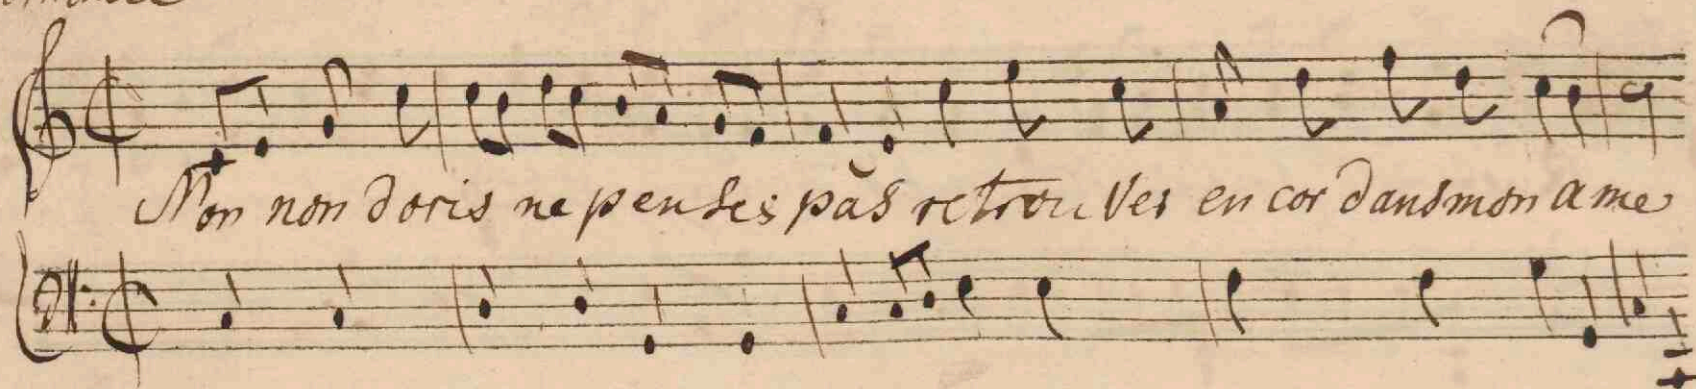 Non non doris ne penses pas retrouver encor dans mon ame